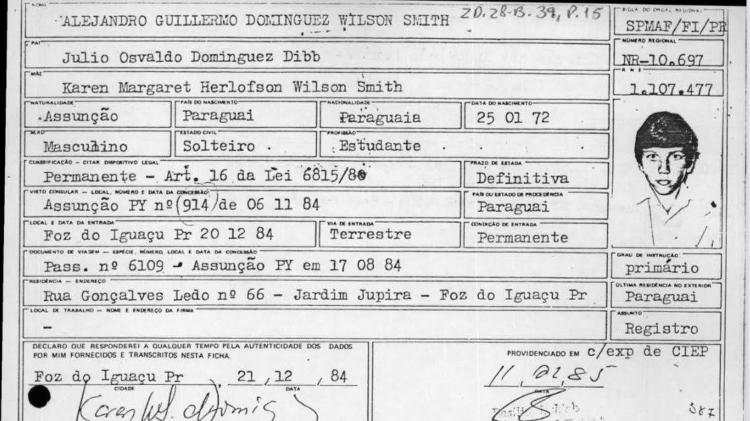 NOME
ALEJANDRO GUILLERMO DOMINGUEZ WILSON SMITH
2D.28-B.39, P.15
SIGLA DO ÓRGÃO REGIONAL
SPMAF/FI/PR
PAI
Julio Osvaldo Dominguez Dibb
NÚMERO REGIONAL
NR-10.697
MÃE
Karen Margaret Herlofson Wilson Smith
R N E
1.107.477
NATURALIDADE
Assunção
PAÍS DO NASCIMENTO
Paraguai
NACIONALIDADE
Paraguaia
DATA DO NASCIMENTO
25 01 72
SEXO
Masculino
ESTADO CIVIL
Solteiro
PROFISSÃO
Estudante
CLASSIFICAÇÃO - CITAR DISPOSITIVO LEGAL
Permanente - Art. 16 da Lei 6815/80
PRAZO DE ESTADA
Definitiva
VISTO CONSULAR - LOCAL, NÚMERO E DATA DA CONCESSÃO
Assunção PY nº (914) de 06 11 84
PAÍS OU ESTADO DE PROCEDÊNCIA
Paraguai
LOCAL E DATA DA ENTRADA
Foz do Iguaçu Pr 20 12 84
VIA DE ENTRADA
Terrestre
CONDIÇÃO DE ENTRADA
Permanente
DOCUMENTO DE VIAGEM - ESPÉCIE, NÚMERO, LOCAL E DATA DA CONCESSÃO
Pass. nº 6109 - Assunção PY em 17 08 84
GRAU DE INSTRUÇÃO
primário
RESIDÊNCIA - ENDEREÇO
Rua Gonçalves Ledo nº 66 - Jardim Jupira - Foz do Iguaçu Pr
ÚLTIMA RESIDÊNCIA NO EXTERIOR
Paraguai
LOCAL DE TRABALHO - NOME E ENDEREÇO DA FIRMA
-
ASSUNTO
Registro
DECLARO QUE RESPONDEREI A QUALQUER TEMPO PELA AUTENTICIDADE DOS DADOS
POR MIM FORNECIDOS E TRANSCRITOS NESTA FICHA.
PROVIDENCIADO EM c/exp de CIEP
Foz do Iguaçu Pr , 21 , 12 , 84
CIDADE DATA
11, 02, 85
DATA
387